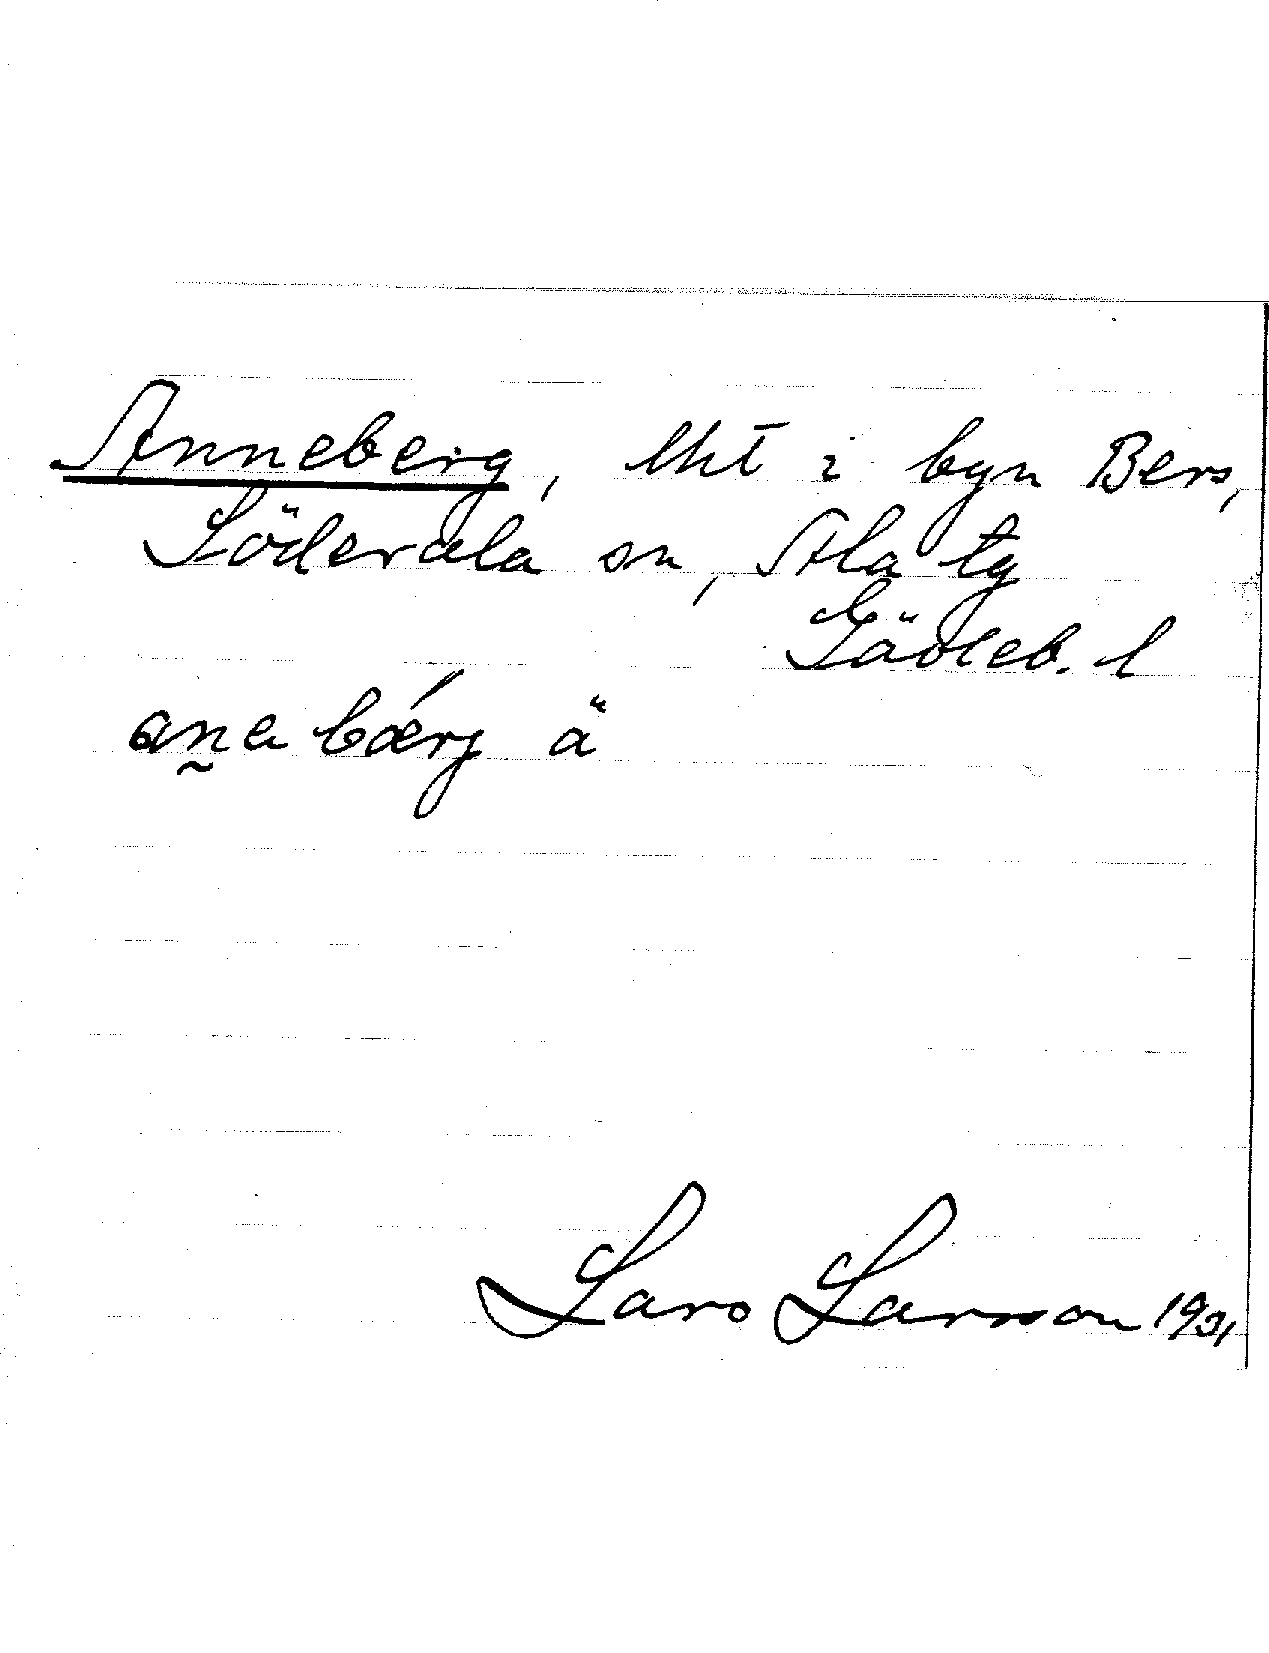 Anneberg, lht i byn Berg,
Söderala sn, Ala tg
Gävleb. l
an̰a bǽrj ä
Lars Larsson 1931